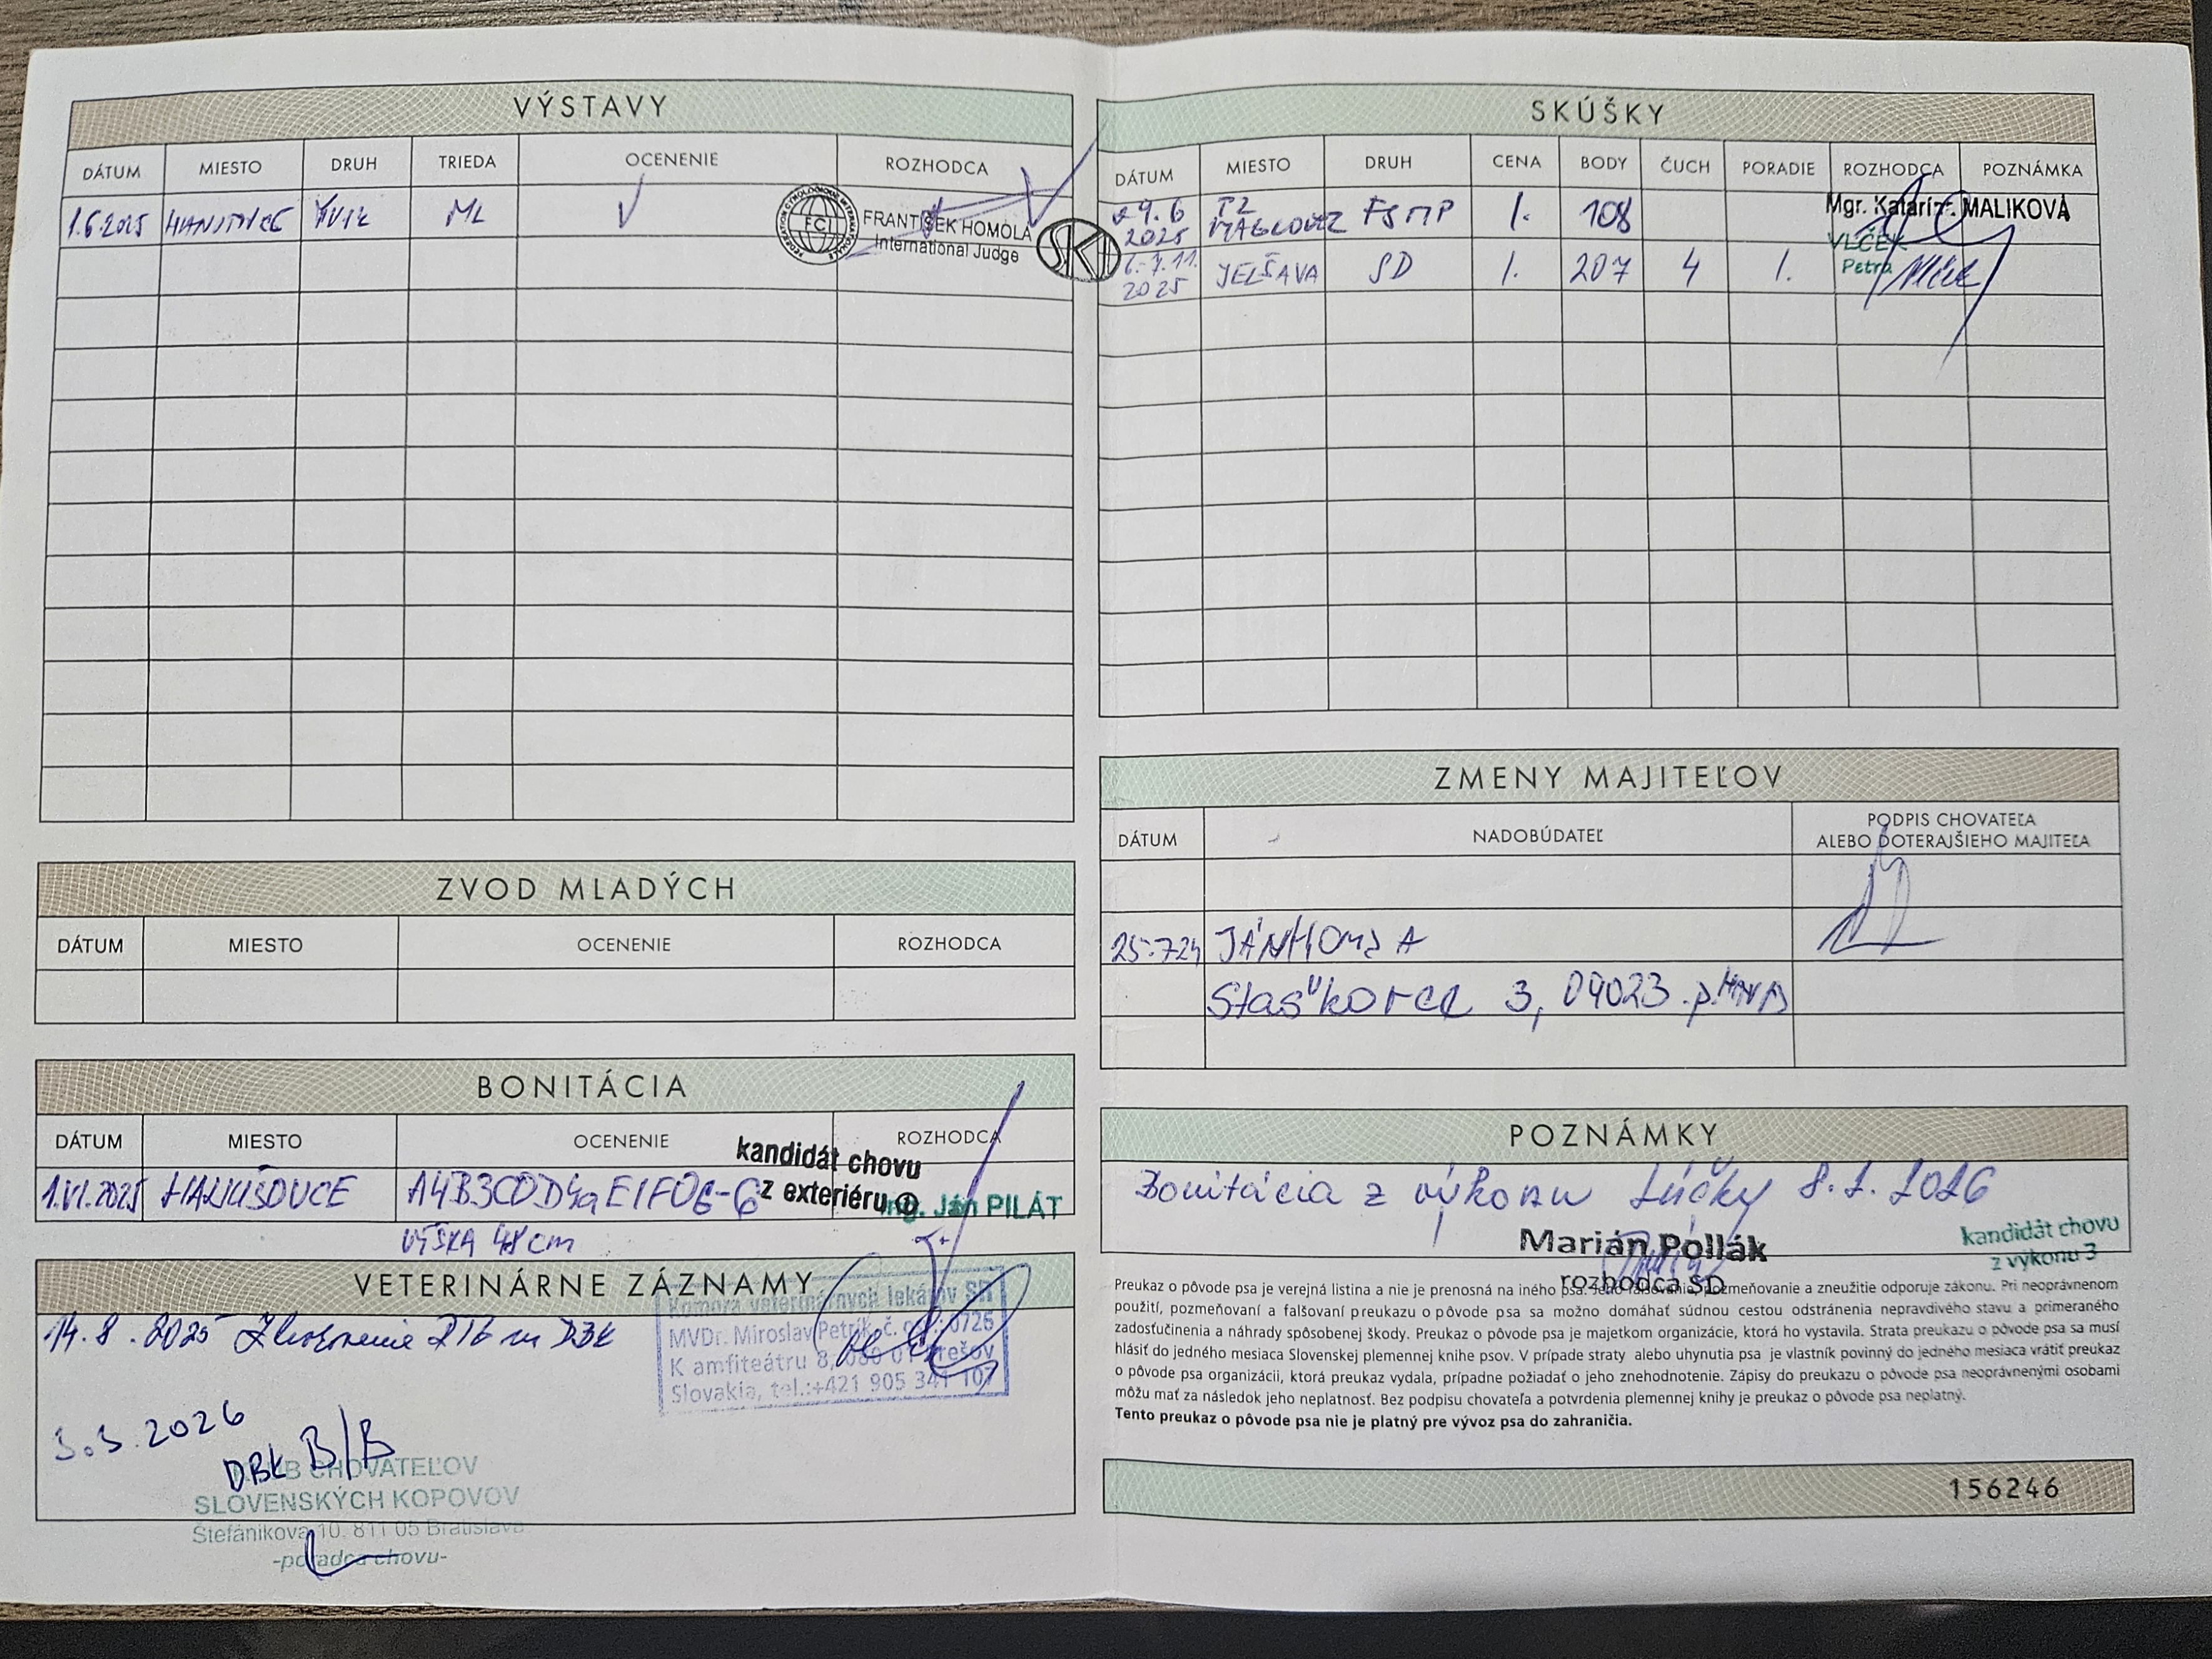 VÝSTAVY
DÁTUM MIESTO DRUH TRIEDA OCENENIE ROZHODCA
1.6.2025 ML V
FCI
FRANTIŠEK HOMOLA
International Judge
SKJ
ZVOD MLADÝCH
DÁTUM MIESTO OCENENIE ROZHODCA
BONITÁCIA
DÁTUM MIESTO OCENENIE ROZHODCA
1.VI.2025 HANUŠOVCE
kandidát chovu
z exteriéru
Ing. Ján PILÁT
VÝŠKA 48 cm
VETERINÁRNE ZÁZNAMY
14.8.2025 DBK
Komora veterinárnych lekárov SR
MVDr. Miroslav Petrík, č. 0726
K amfiteátru 8, 080 01 Prešov
Slovakia, tel.:+421 905 341 107
3.3.2026
DBK B/B
KLUB CHOVATEĽOV
SLOVENSKÝCH KOPOVOV
Štefánikova 10, 811 05 Bratislava
-poradca chovu-
SKÚŠKY
DÁTUM MIESTO DRUH CENA BODY ČUCH PORADIE ROZHODCA POZNÁMKA
29.6 2025 FSMP 1. 108
Mgr. Katarína MALIKOVÁ
6.-7.11. 2025 JELŠAVA SD 1. 207 4 1.
VLČEK
Petra
ZMENY MAJITEĽOV
DÁTUM NADOBÚDATEĽ PODPIS CHOVATEĽA
ALEBO DOTERAJŠIEHO MAJITEĽA
25.7.24 JÁN HOMZA
Staškovce 3, 09023
POZNÁMKY
Bonitácia z výkonu Lúčky 8.1.2026
Marián Pollák
rozhodca SD
kandidát chovu
z výkonu 3
Preukaz o pôvode psa je verejná listina a nie je prenosná na iného psa. Jeho falšovanie, pozmeňovanie a zneužitie odporuje zákonu. Pri neoprávnenom
použití, pozmeňovaní a falšovaní preukazu o pôvode psa sa možno domáhať súdnou cestou odstránenia nepravdivého stavu a primeraného
zadosťučinenia a náhrady spôsobenej škody. Preukaz o pôvode psa je majetkom organizácie, ktorá ho vystavila. Strata preukazu o pôvode psa sa musí
hlásiť do jedného mesiaca Slovenskej plemennej knihe psov. V prípade straty alebo uhynutia psa je vlastník povinný do jedného mesiaca vrátiť preukaz
o pôvode psa organizácii, ktorá preukaz vydala, prípadne požiadať o jeho znehodnotenie. Zápisy do preukazu o pôvode psa neoprávnenými osobami
môžu mať za následok jeho neplatnosť. Bez podpisu chovateľa a potvrdenia plemennej knihy je preukaz o pôvode psa neplatný.
Tento preukaz o pôvode psa nie je platný pre vývoz psa do zahraničia.
156246